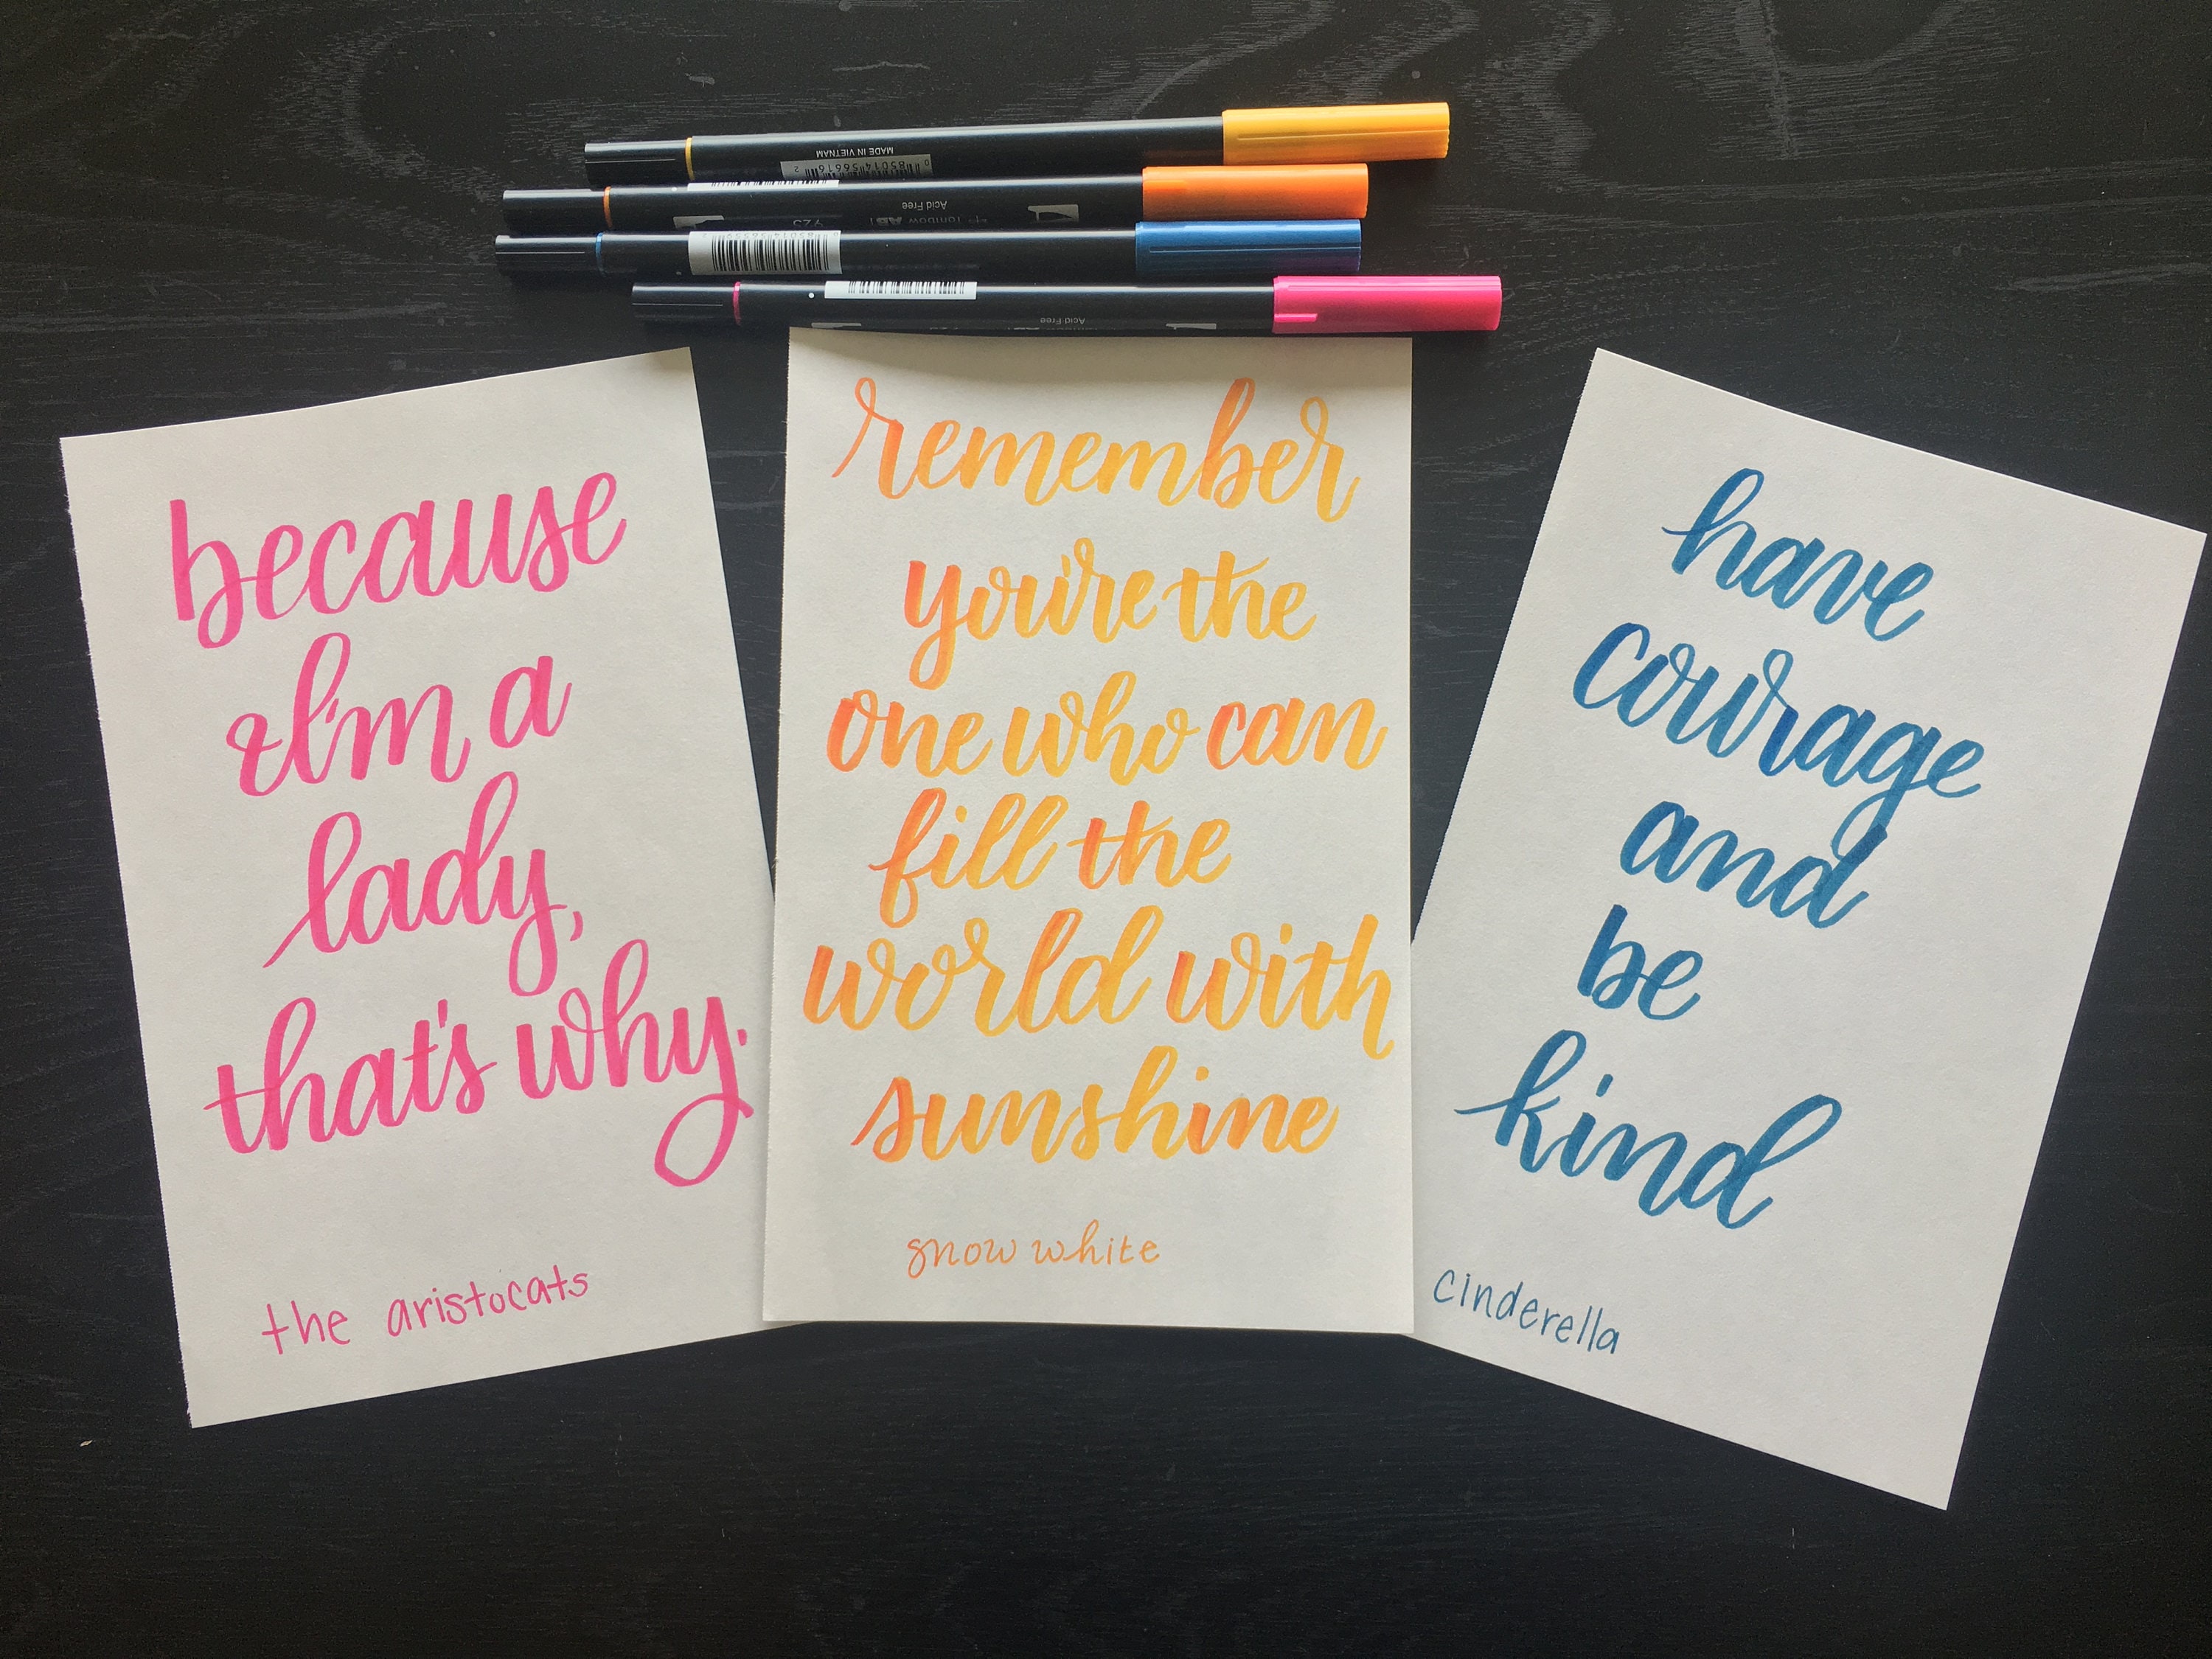 MADE IN VIETNAM
Acid Free
Tombow ABT
925
Acid Free
because
I'm a
lady,
that's why.
the aristocats
remember
you're the
one who can
fill the
world with
sunshine
snow white
have
courage
and
be
kind
cinderella